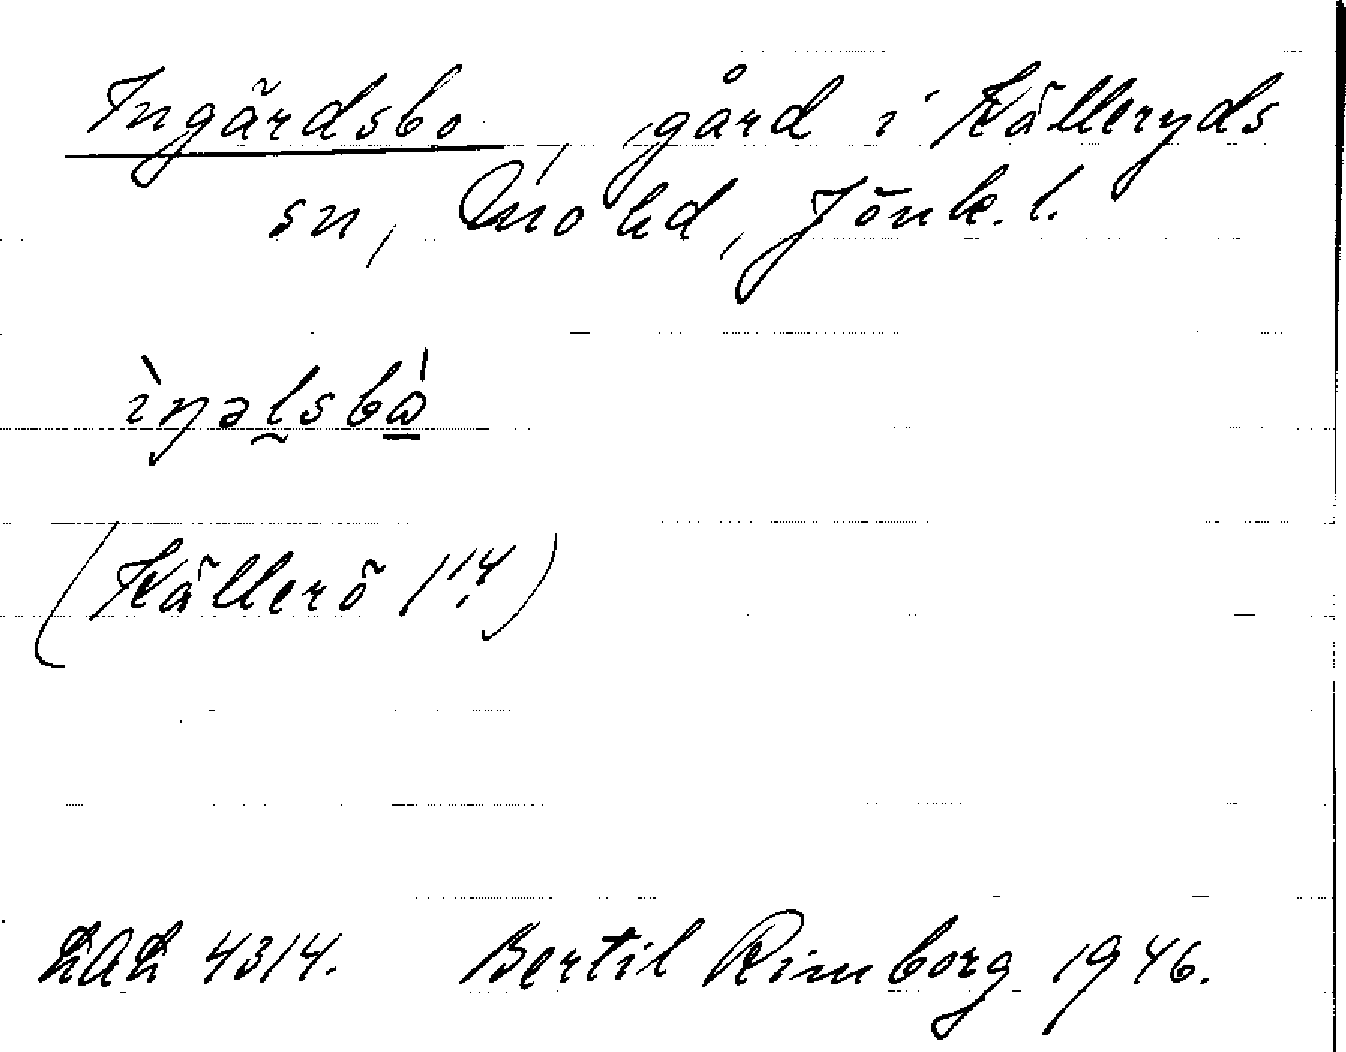 Ingärdsbo, gård i Kålleryds
sn, Mo hd, Jönk. l.
ìŋəl̰sbà̲
(Kållerö 1:4)
LAL 4314. Bertil Rimborg 1946.